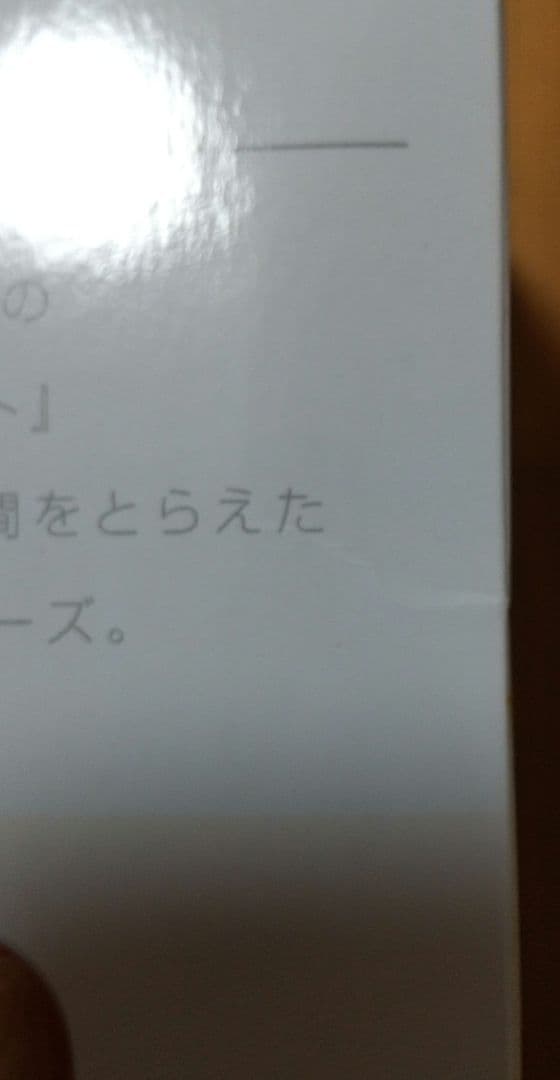 の
ト』
間をとらえた
ーズ。